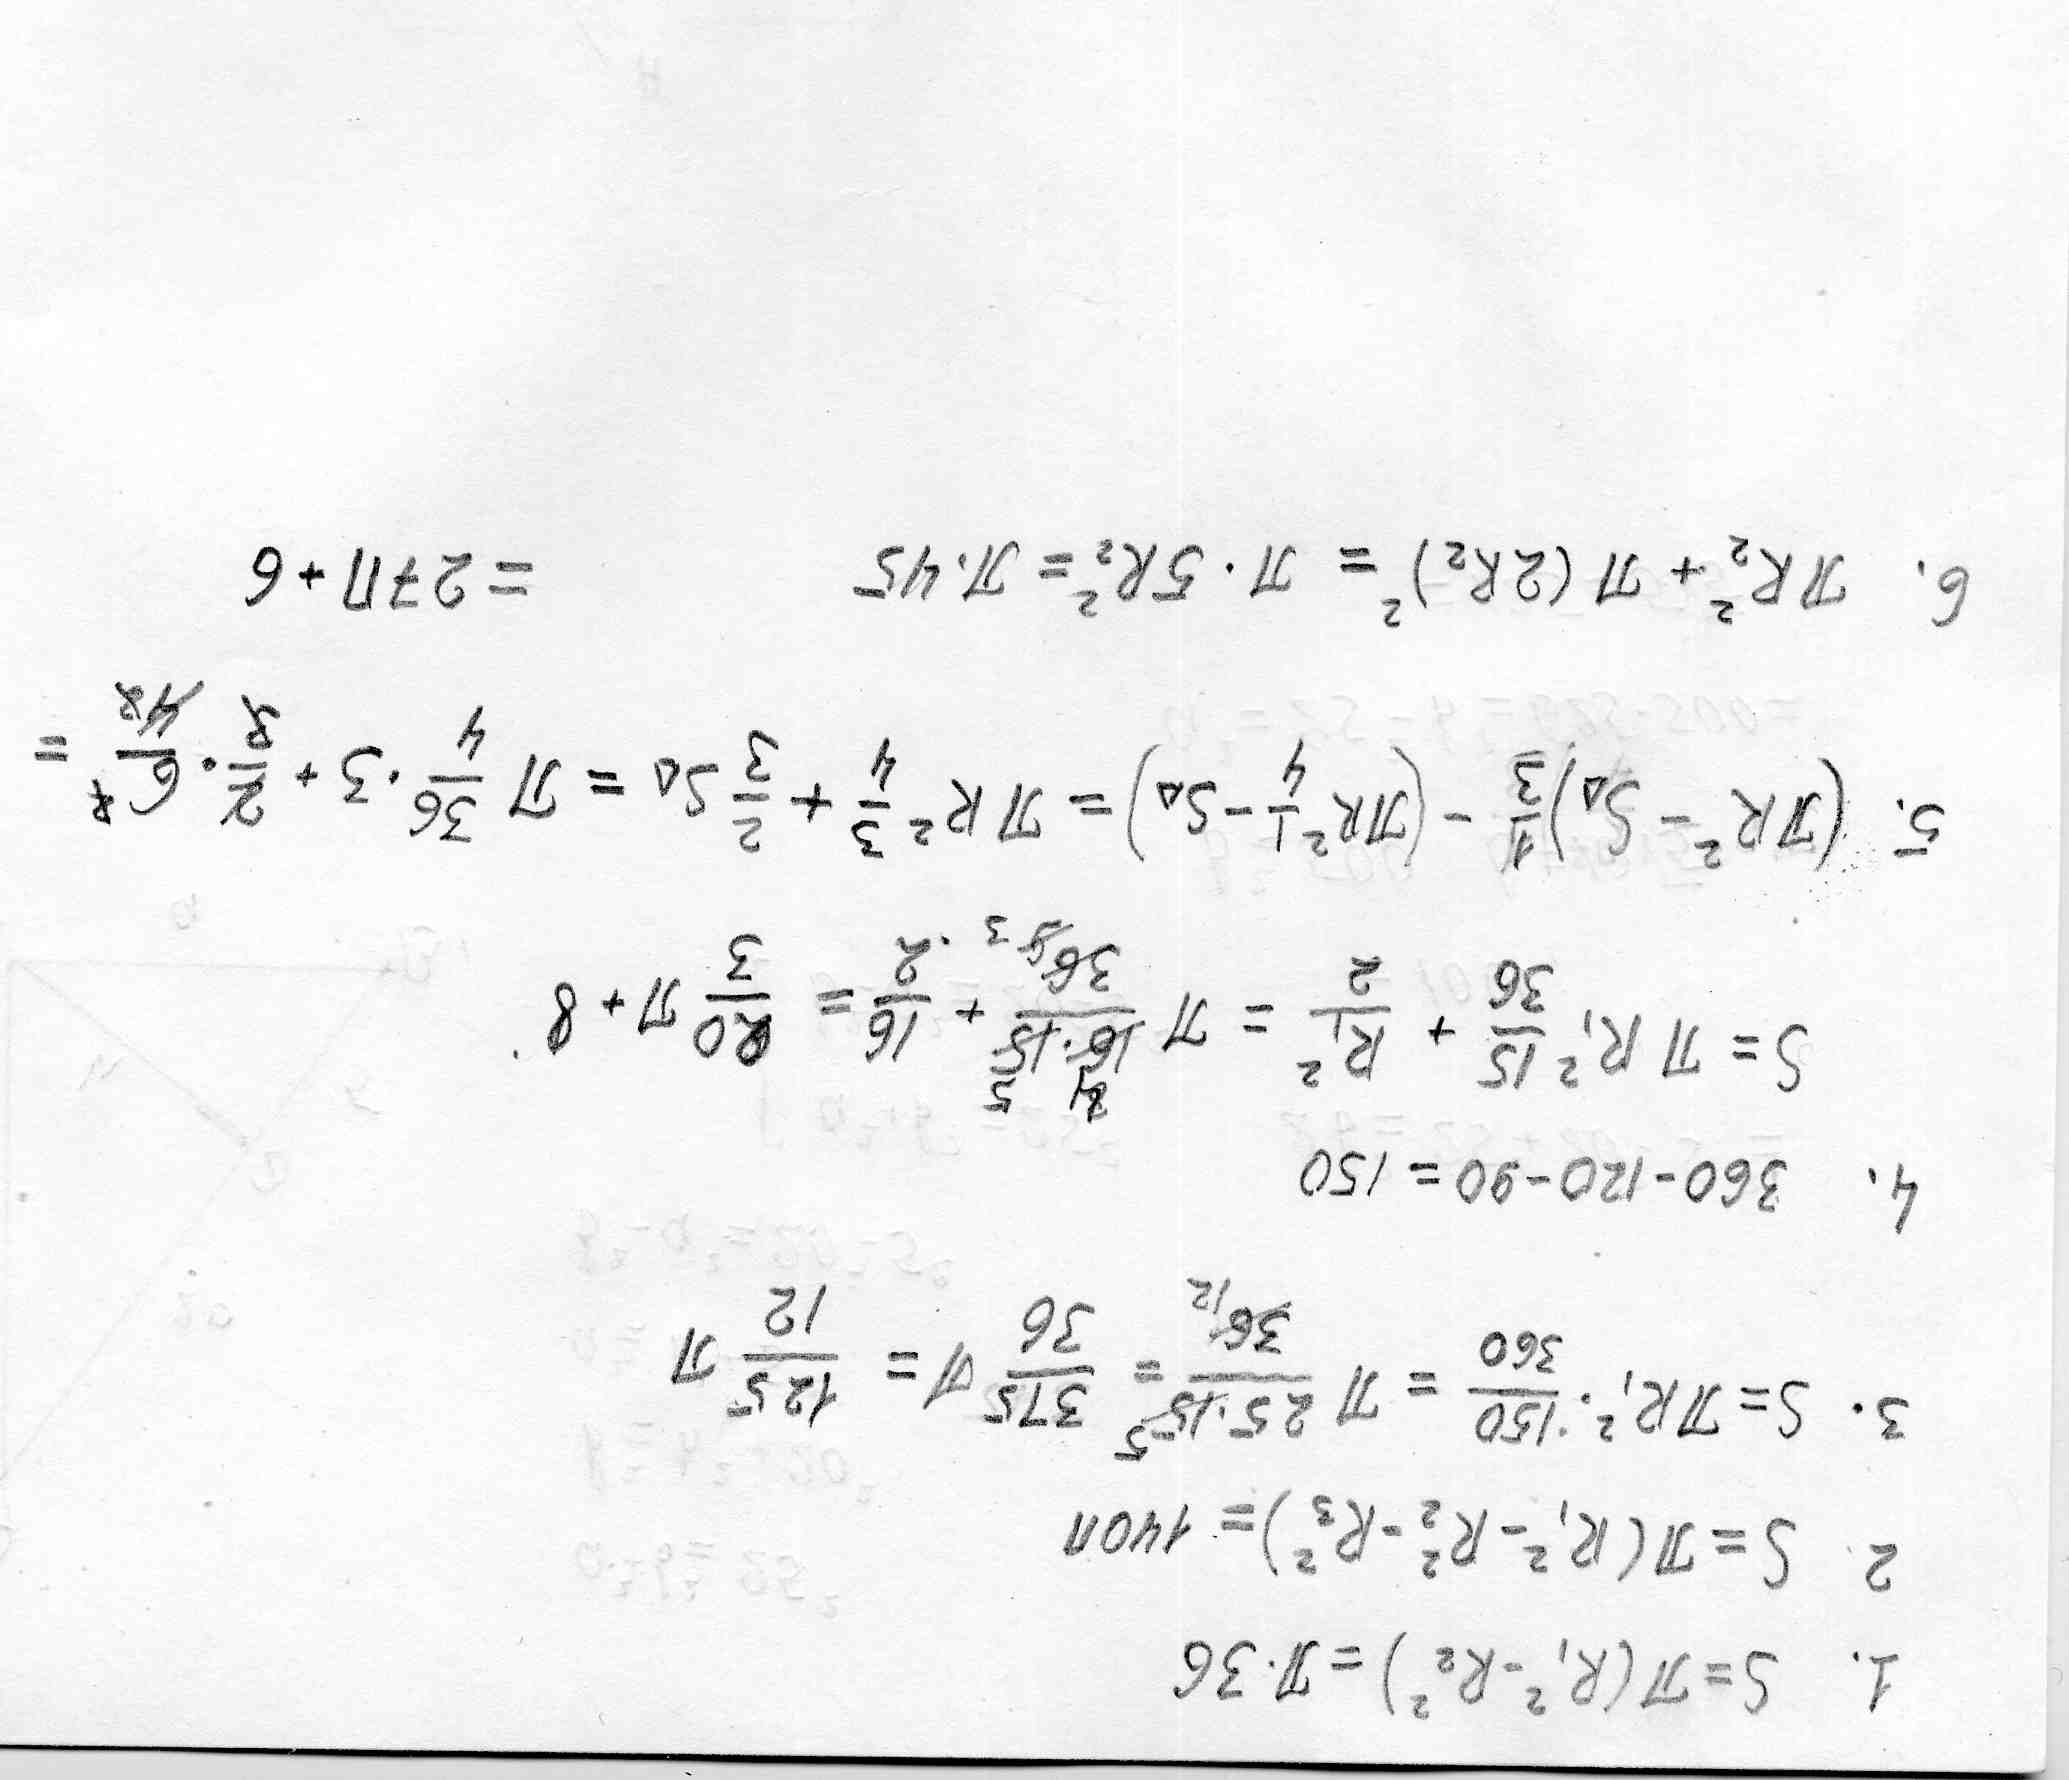 1. S = π(R₁² - R₂²) = π·36
2. S = π(R₁² - R₂² - R₃²) = 140π
3. S = πR₁² · 150/360 = π 25·15/36 = 375/36 π = 125/12 π
4. 360 - 120 - 90 = 150
S = πR₁² 15/36 + R₁²/2 = π 16·15/36 + 16/2 = 20/3 π + 8.
5. (πR² - S△) 1/3 - (πR² 1/4 - S△) = πR² 3/4 + 2/3 S△ = π 36/4 · 3 + 2/3 · 6/4 =
= 27π + 6
6. πR₂² + π(2R₂)² = π·5R₂² = π·45